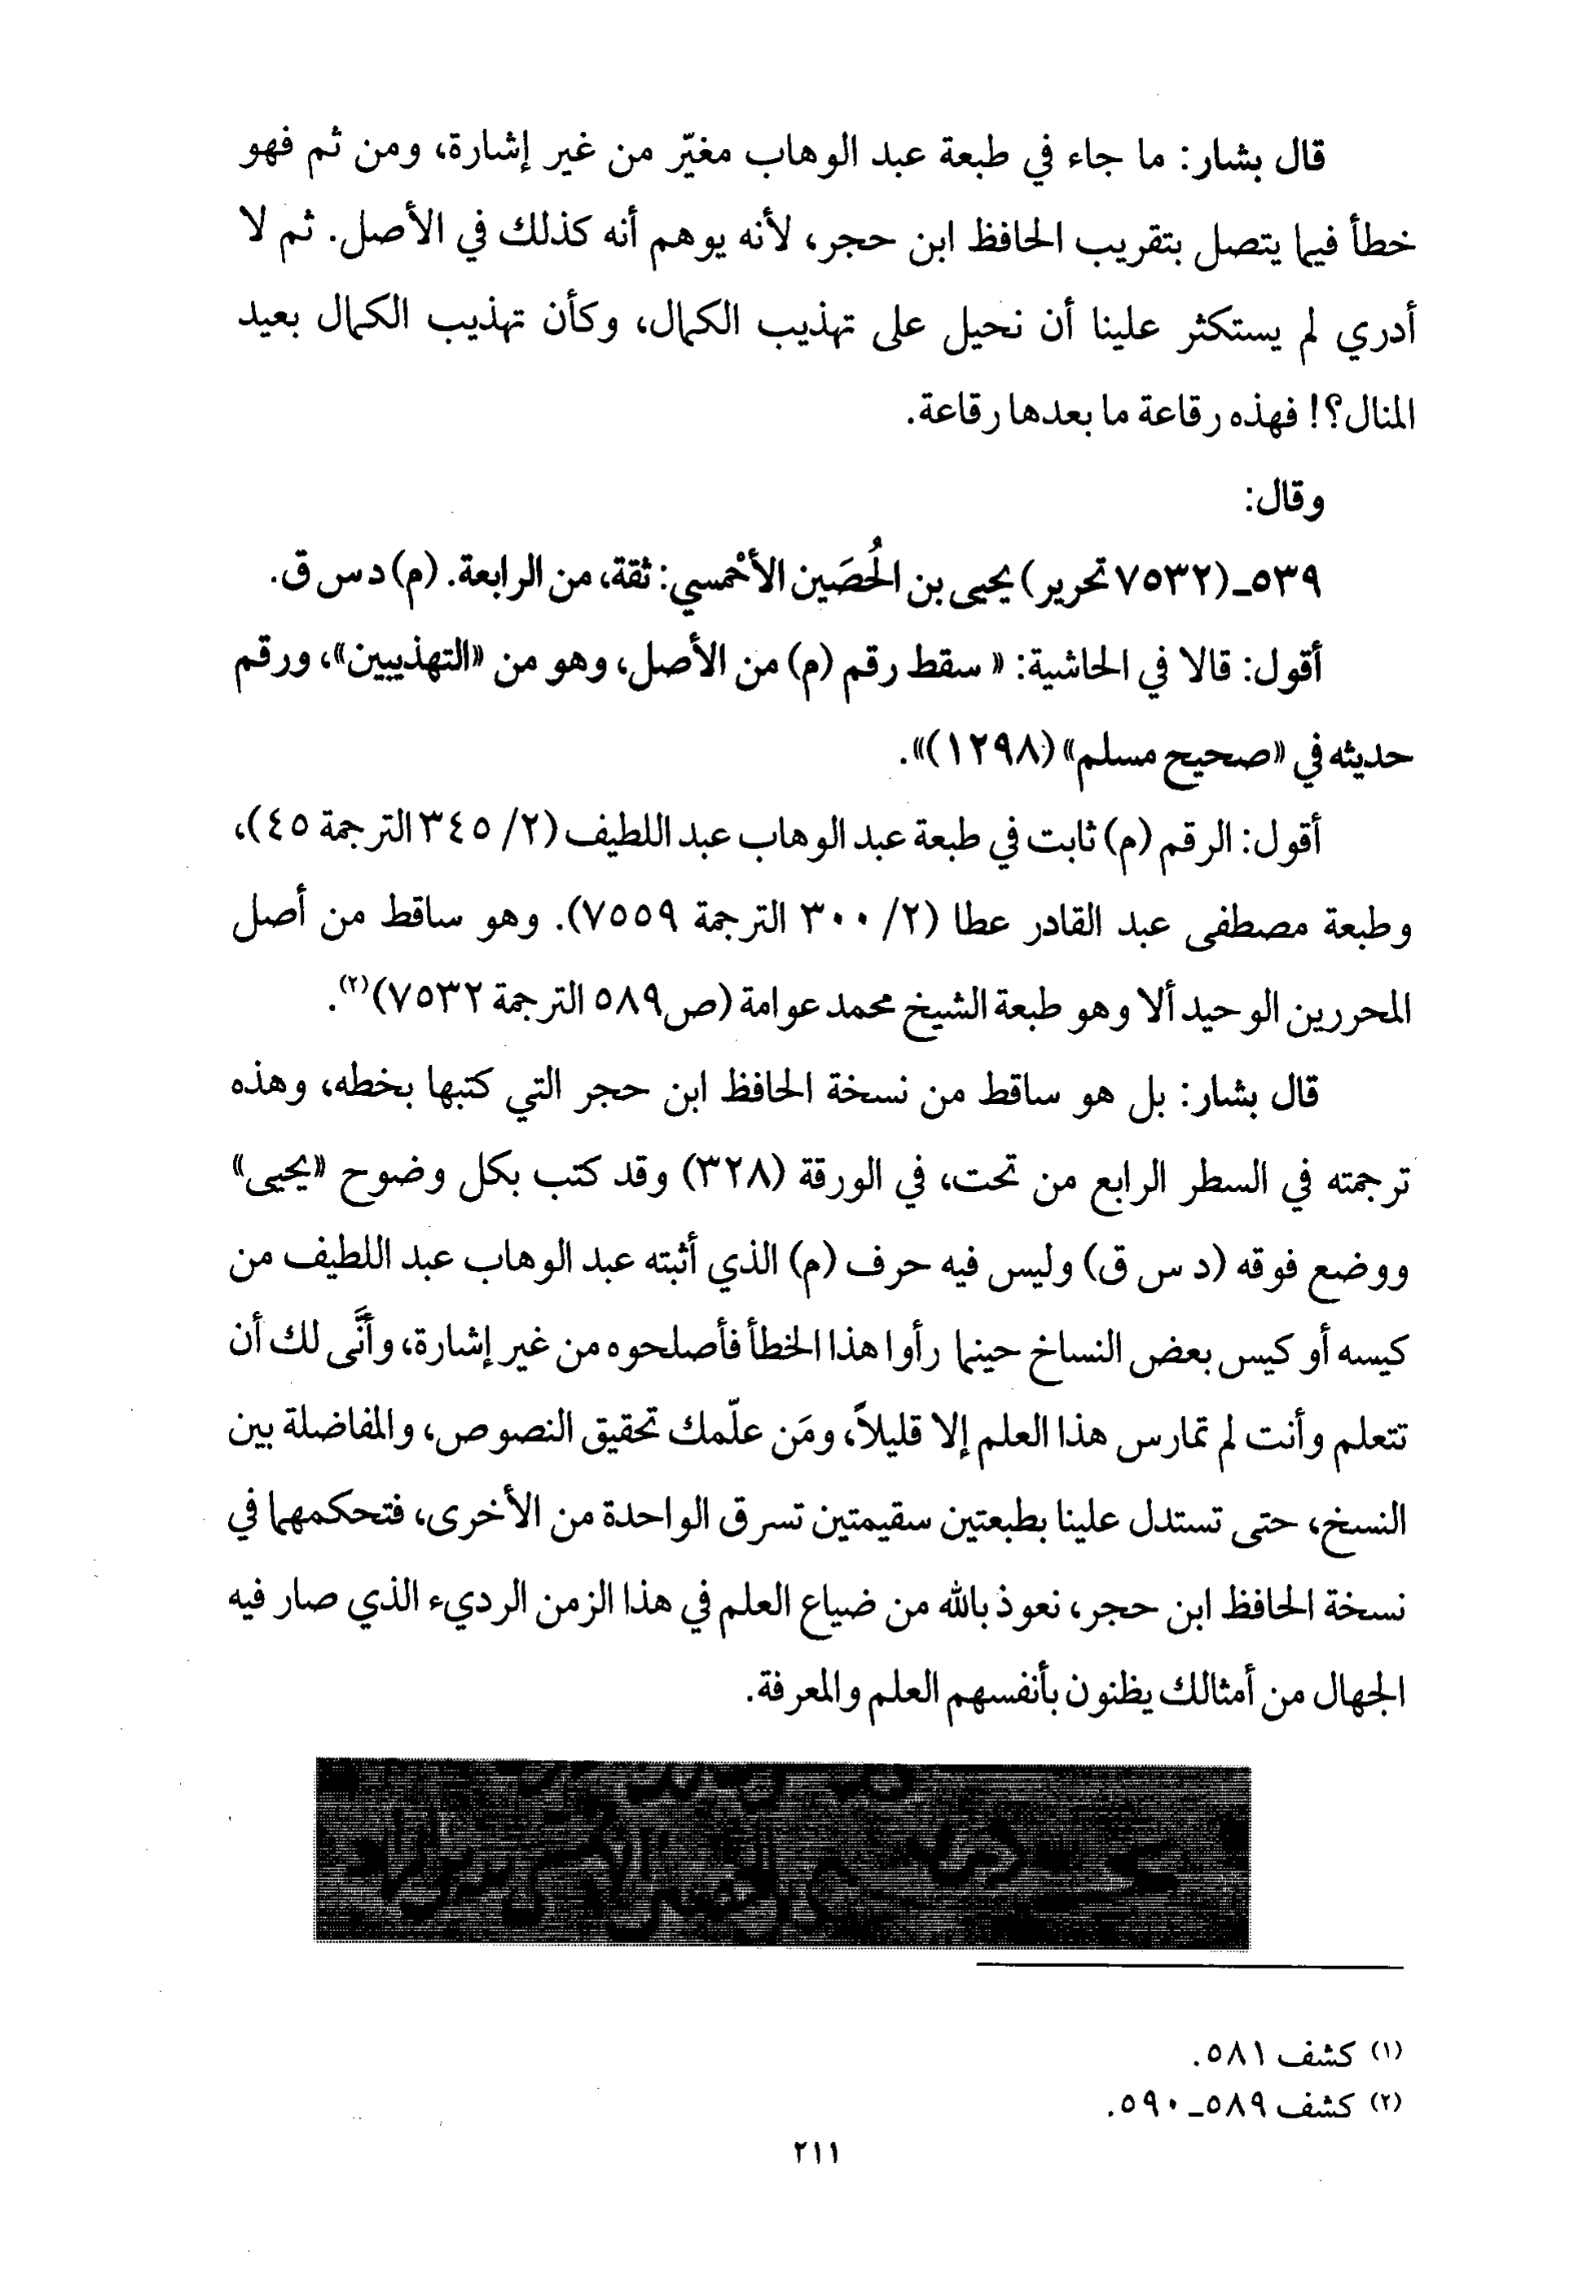 قال بشار: ما جاء في طبعة عبد الوهاب مغيّر من غير إشارة، ومن ثم فهو
خطأ فيما يتصل بتقريب الحافظ ابن حجر، لأنه يوهم أنه كذلك في الأصل. ثم لا
أدري لم يستكثر علينا أن نحيل على تهذيب الكمال، وكأن تهذيب الكمال بعيد
المنال؟! فهذه رقاعة ما بعدها رقاعة.
وقال:
٥٣٩ـ (٧٥٣٢ تحرير) يحيى بن الحُصَين الأحْمسي: ثقة، من الرابعة. (م) د س ق.
أقول: قالا في الحاشية: « سقط رقم (م) من الأصل، وهو من «التهذيبين»، ورقم
حديثه في «صحيح مسلم» (١٢٩٨)».
أقول: الرقم (م) ثابت في طبعة عبد الوهاب عبد اللطيف (٢/ ٣٤٥ الترجمة ٤٥)،
وطبعة مصطفى عبد القادر عطا (٢/ ٣٠٠ الترجمة ٧٥٥٩). وهو ساقط من أصل
المحررين الوحيد ألا وهو طبعة الشيخ محمد عوامة (ص٥٨٩ الترجمة ٧٥٣٢)(٢).
قال بشار: بل هو ساقط من نسخة الحافظ ابن حجر التي كتبها بخطه، وهذه
ترجمته في السطر الرابع من تحت، في الورقة (٣٢٨) وقد كتب بكل وضوح «يحيى»
ووضع فوقه (د س ق) وليس فيه حرف (م) الذي أثبته عبد الوهاب عبد اللطيف من
كيسه أو كيس بعض النساخ حينما رأوا هذا الخطأ فأصلحوه من غير إشارة، وأَنَّى لك أن
تتعلم وأنت لم تمارس هذا العلم إلا قليلاً، ومَن علّمك تحقيق النصوص، والمفاضلة بين
النسخ، حتى تستدل علينا بطبعتين سقيمتين تسرق الواحدة من الأخرى، فتحكمهما في
نسخة الحافظ ابن حجر، نعوذ بالله من ضياع العلم في هذا الزمن الرديء الذي صار فيه
الجهال من أمثالك يظنون بأنفسهم العلم والمعرفة.
(١) كشف ٥٨١.
(٢) كشف ٥٨٩ـ ٥٩٠.
٢١١